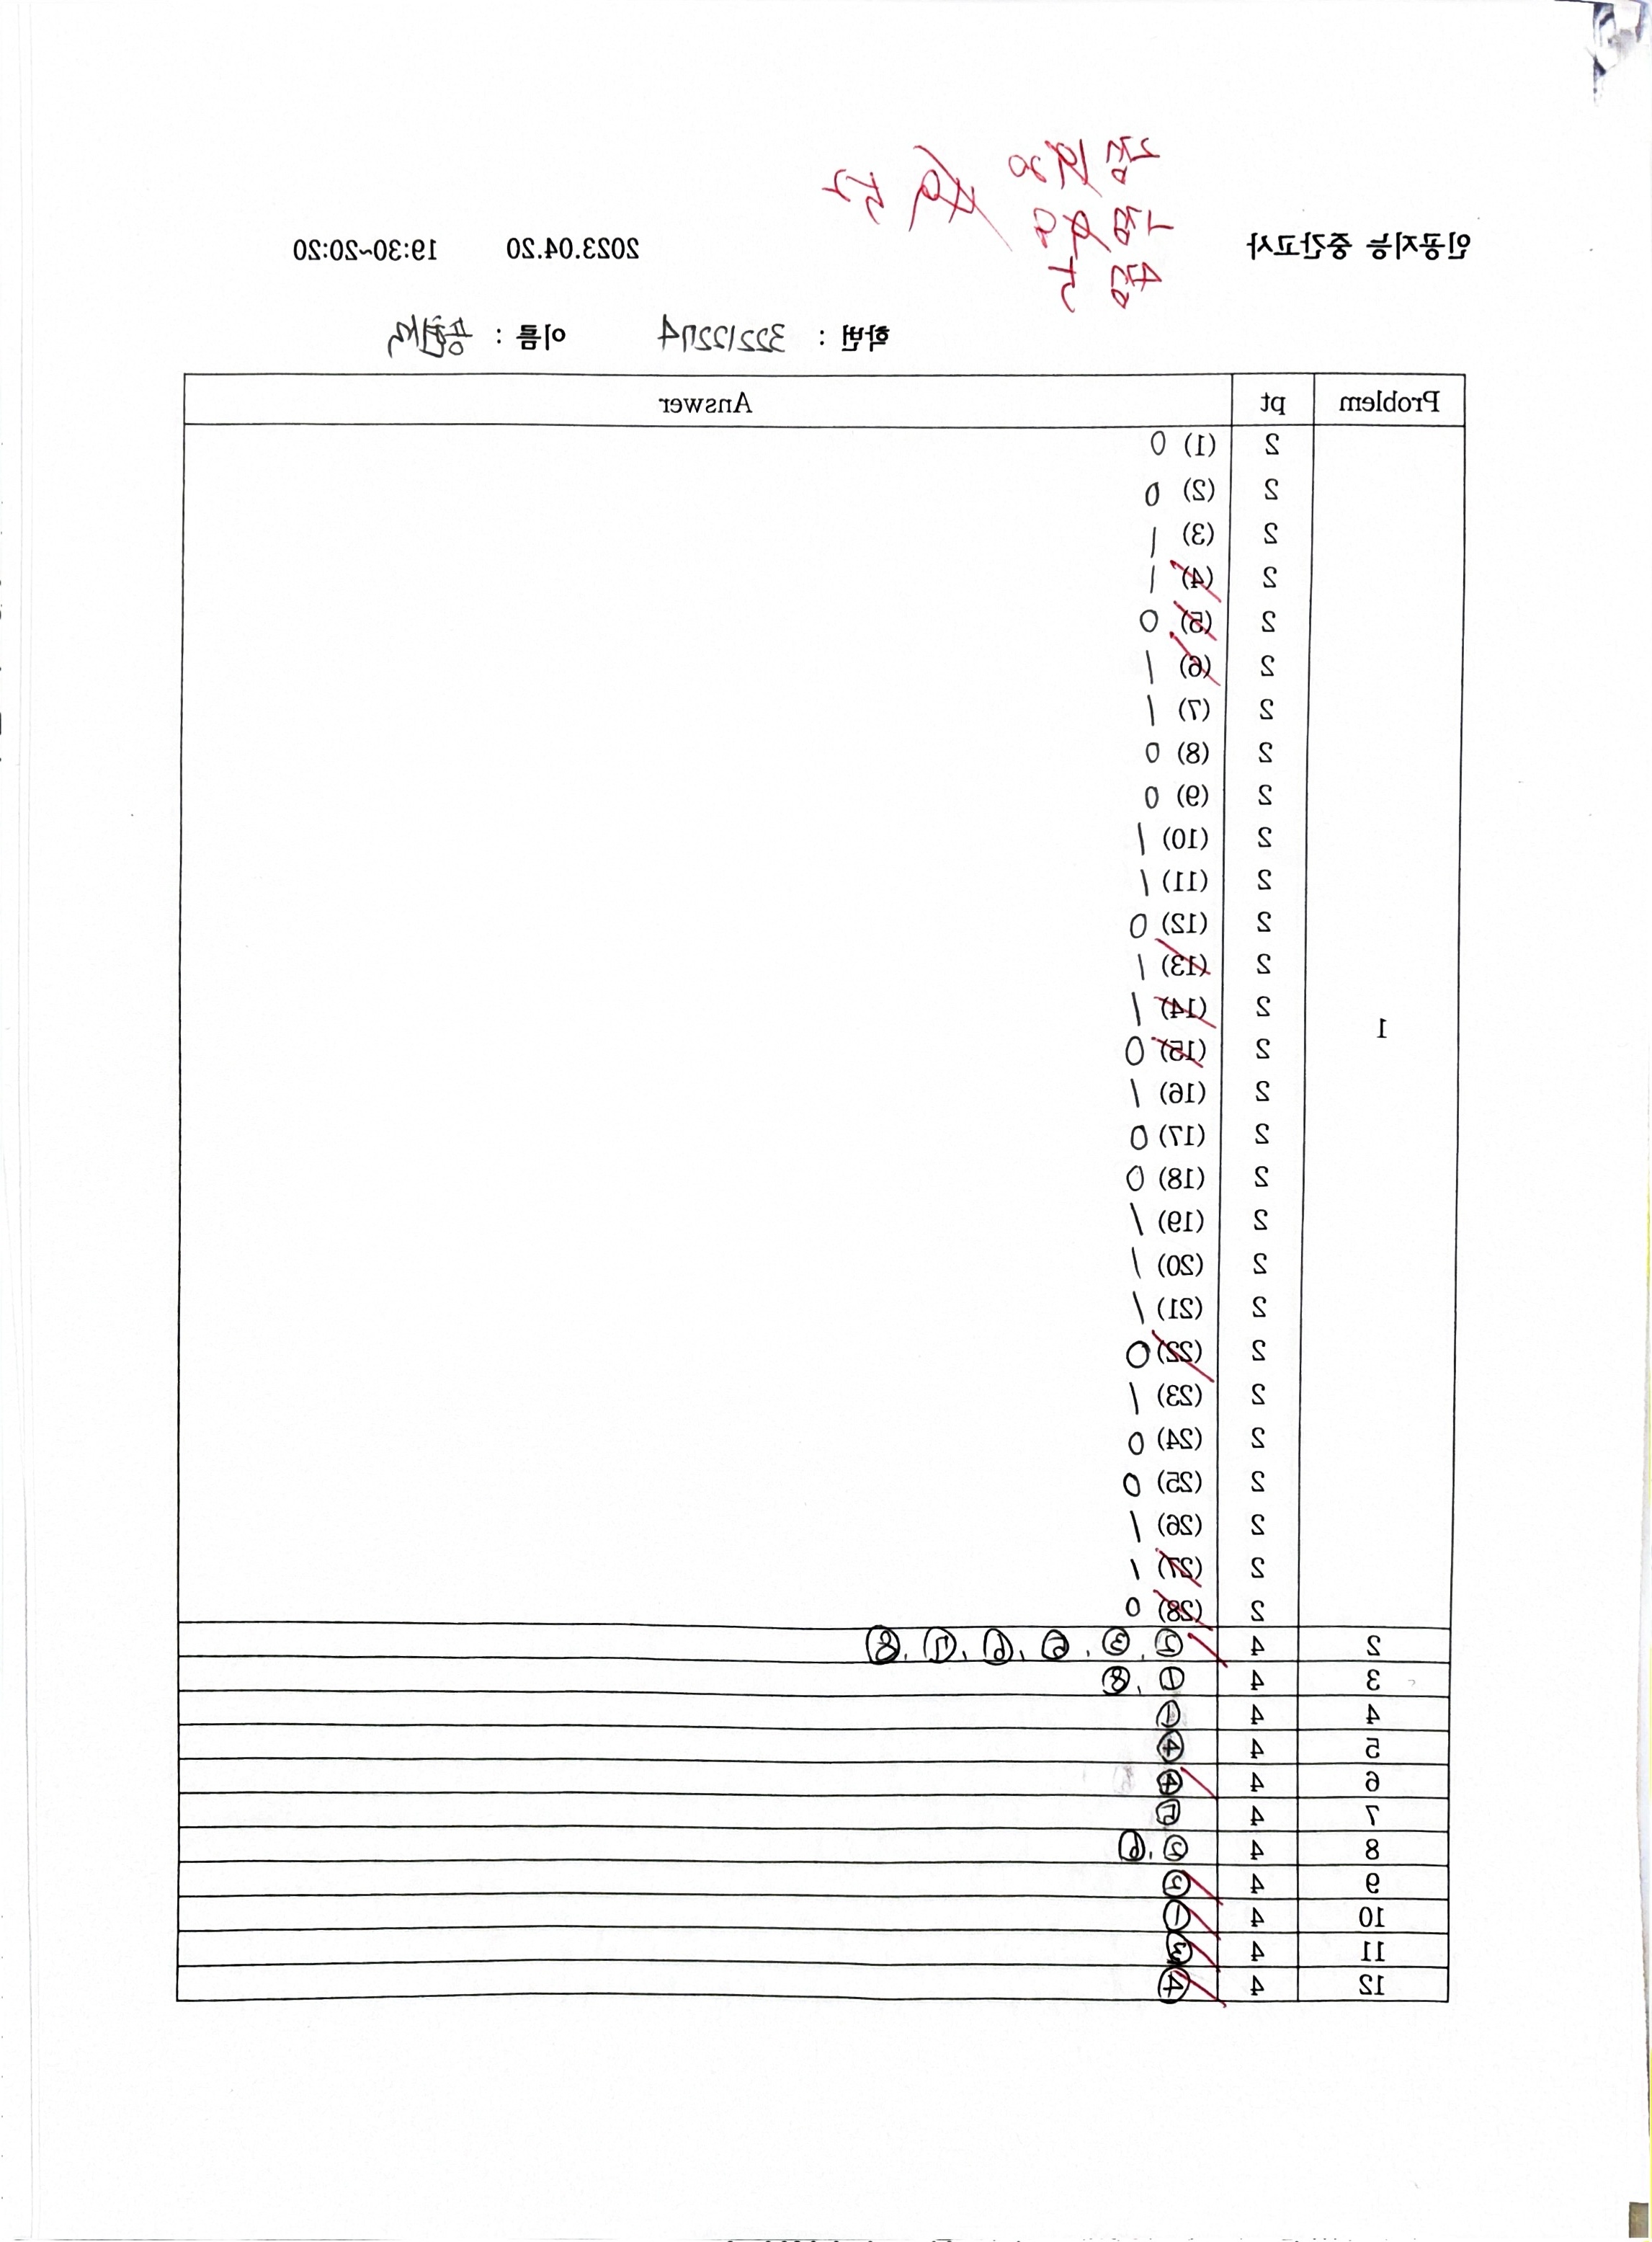 인공지능 중간고사 2023.04.20 19:30~20:20
학번 : 32212274 이름 :
Problem pt Answer
1
2 (1) 0
2 (2) 0
2 (3) 1
2 (4) 1
2 (5) 0
2 (6) 1
2 (7) 1
2 (8) 0
2 (9) 0
2 (10) 1
2 (11) 1
2 (12) 0
2 (13) 1
2 (14) 1
2 (15) 0
2 (16) 1
2 (17) 0
2 (18) 0
2 (19) 1
2 (20) 1
2 (21) 1
2 (22) 0
2 (23) 1
2 (24) 0
2 (25) 0
2 (26) 1
2 (27) 1
2 (28) 0
2 4 ②, ③, ⑤, ⑥, ⑦, ⑧
3 4 ①, ⑧
4 4 ①
5 4 ④
6 4 ④
7 4 ⑤
8 4 ②, ⑥
9 4 ②
10 4 ①
11 4 ③
12 4 ④